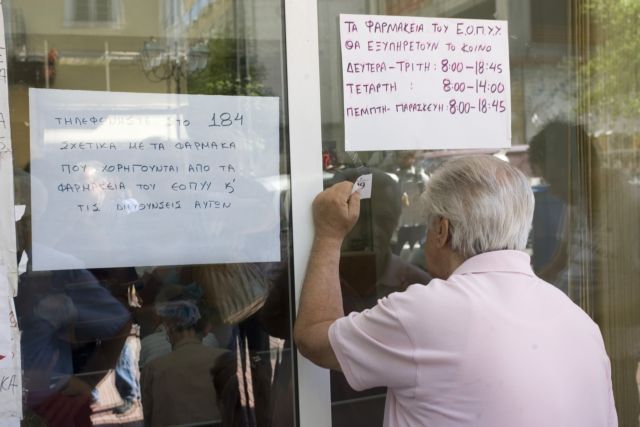 ΤΗΛΕΦΩΝΗΣΤΕ ΣΤΟ 184
ΣΧΕΤΙΚΑ ΜΕ ΤΑ ΦΑΡΜΑΚΑ
ΠΟΥ ΧΟΡΗΓΟΥΝΤΑΙ ΑΠΟ ΤΑ
ΦΑΡΜΑΚΕΙΑ ΤΟΥ ΕΟΠΥΥ Κ'
ΤΙΣ ΔΙΕΥΘΥΝΣΕΙΣ ΑΥΤΩΝ
ΤΑ ΦΑΡΜΑΚΕΙΑ ΤΟΥ Ε.Ο.Π.Υ.Υ.
ΘΑ ΕΞΥΠΗΡΕΤΟΥΝ ΤΟ ΚΟΙΝΟ
ΔΕΥΤΕΡΑ-ΤΡΙΤΗ: 8:00-18:45
ΤΕΤΑΡΤΗ : 8:00-14:00
ΠΕΜΠΤΗ-ΠΑΡΑΣΚΕΥΗ: 8:00-18:45